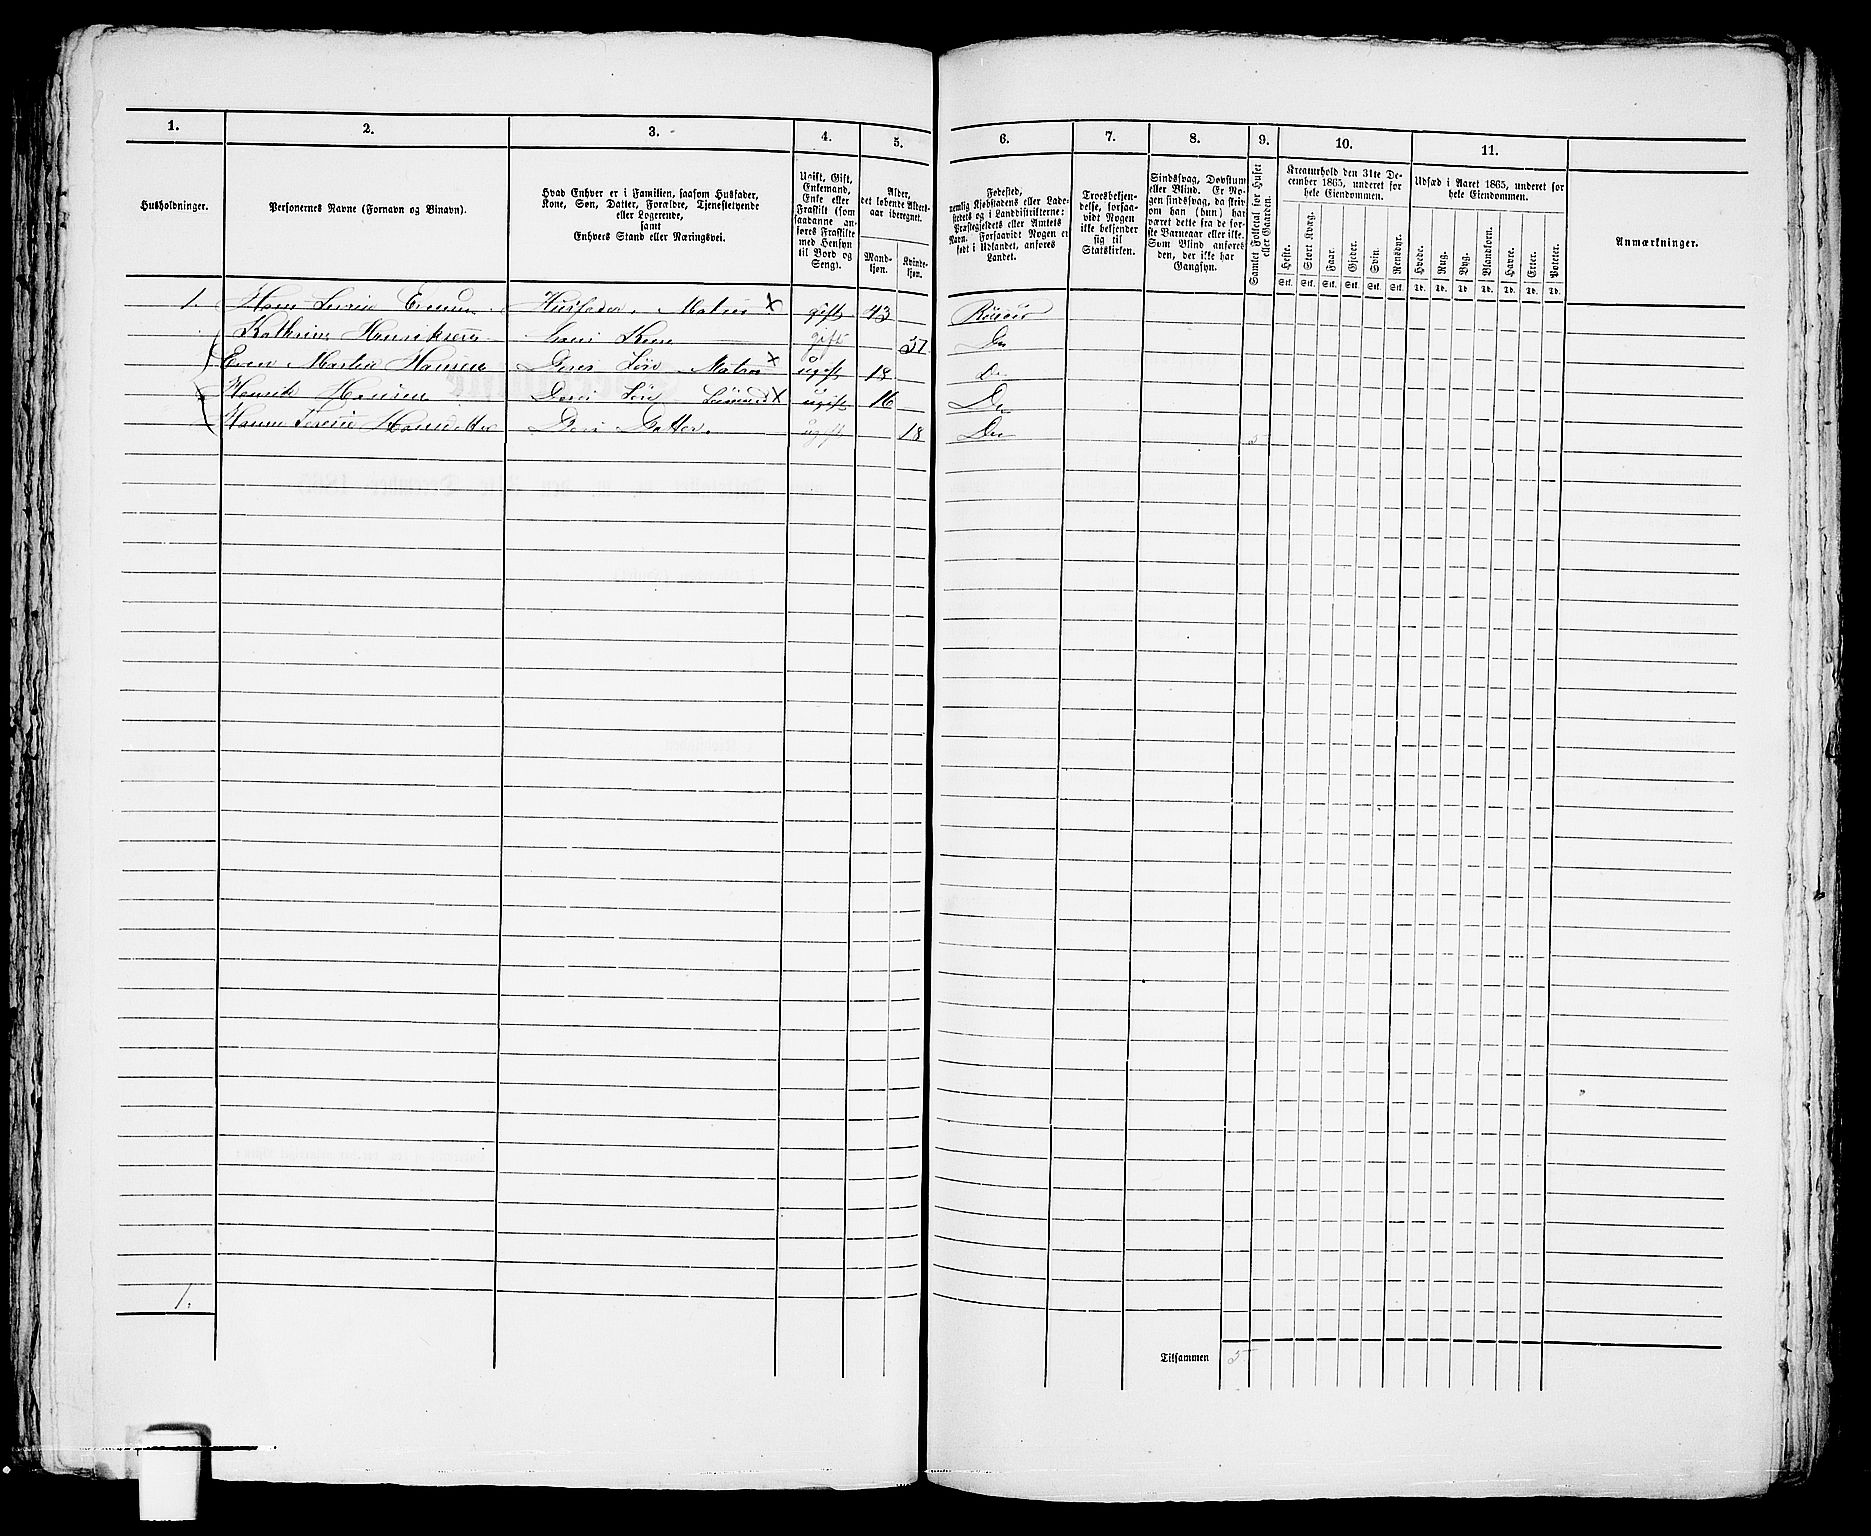 1. 2. 3. 4. 5. 6. 7. 8. 9. 10. 11.
Husholdninger.
Personernes Navne (Fornavn og Binavn).
Hvad Enhver er i Familien, saasom Husfader,
Kone, Søn, Datter, Forældre, Tjenestetyende
eller Logerende,
samt
Enhvers Stand eller Næringsvei.
Ugift, Gift,
Enkemand,
Enke eller
Fraskilt (som
saadanne an-
føres Fraskilte
med Hensyn
til Bord og
Seng).
Alder,
det løbende Alders-
aar iberegnet.
Mand-
kjøn.
Kvinde-
kjøn.
Fødested,
nemlig Kjøbstadens eller Lade-
stedets og i Landdistrikterne:
Præstegjeldets eller Amtets
Navn. Forsaavidt Nogen er
født i Udlandet, anføres
Landet.
Troesbekjen-
delse, forsaa-
vidt Nogen
ikke bekjender
sig til
Statskirken.
Sindssvag, Døvstum
eller Blind. Er No-
gen sindssvag, da skriv
om han (hun) har
været dette fra de før-
ste Barneaar eller ikke.
Som Blind anføres
den, der ikke har
Gangsyn.
Samlet Folketal for Huset
eller Gaarden.
Kreaturhold den 31te De-
cember 1865, underet for
hele Eiendommen.
Heste. Stort Kvæg. Faar. Gjeder. Svin. Rensdyr.
Stk. Stk. Stk. Stk. Stk. Stk.
Udsæd i Aaret 1865, underet for
hele Eiendommen.
Hvede. Rug. Byg. Blandkorn. Havre. Erter. Poteter.
Td. Td. Td. Td. Td. Td. Td.
Anmærkninger.
1. Husfader. Matros X gift 43 Risøer
Kathrine Henriksen Hans Kone gift Do
Even Martin Hansen Deres Søn Matros X ugift 18 Do
Henrik Hansen Deres Søn X ugift 16 Do
Deres Datter. ugift 18 Do 5
1.
Tilsammen 5